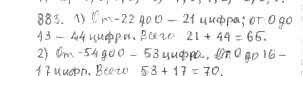 883. 1) От -22 до 0 - 21 цифра; от 0 до
43 - 44 цифры. Всего 21 + 44 = 65.
2) От -54 до 0 - 53 цифры. От 0 до 16 -
17 цифр. Всего 53 + 17 = 70.